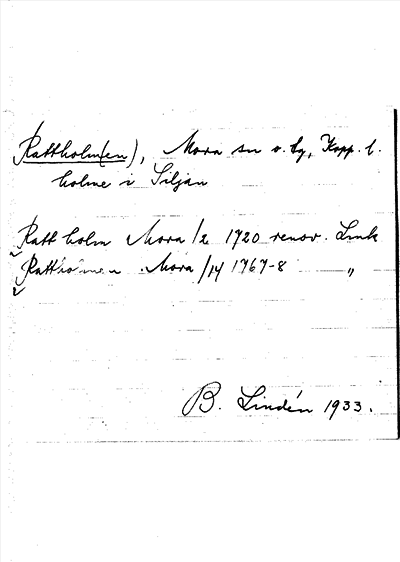 Rattholm(en), Mora sn o. tg, Kopp. l.
holme i Siljan
Rattholm Mora /2 1720 renov. Lmk
Rattholmen Mora /14 1767-8 "
B. Lindén 1933.